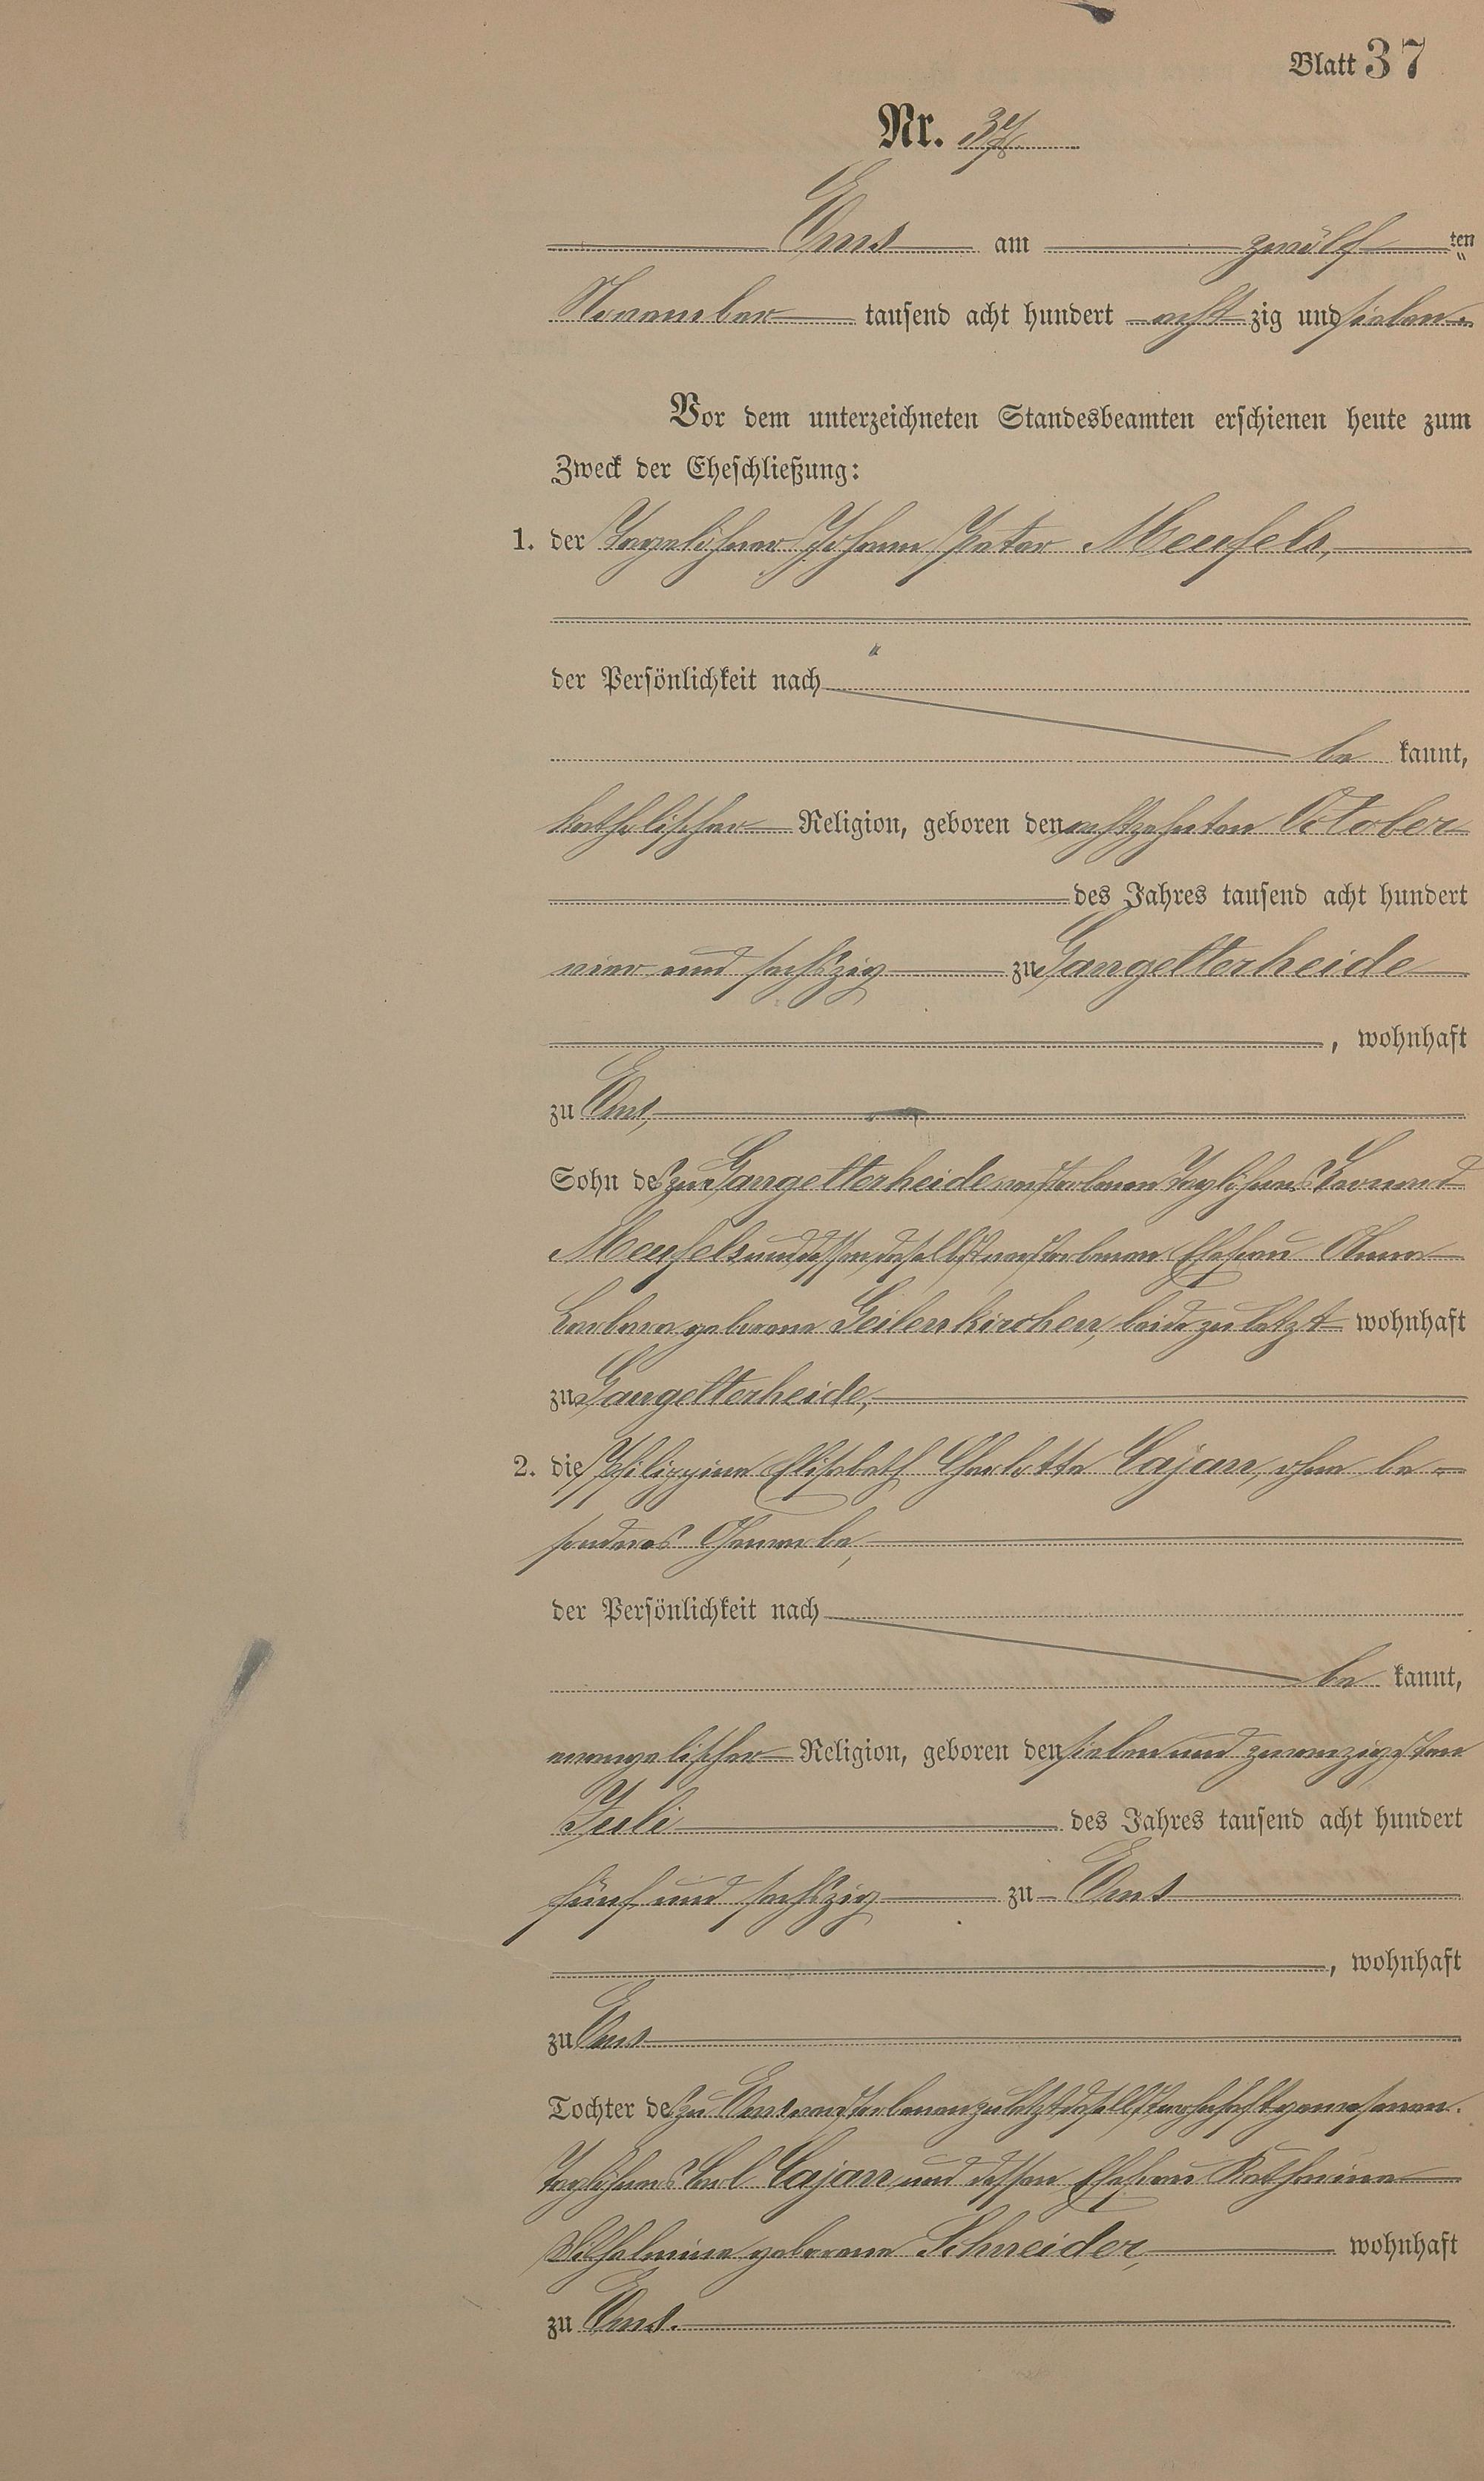 Blatt 37
Nr. 37.
Ems am zwölf ten
November tausend acht hundert acht zig und sieben.
Vor dem unterzeichneten Standesbeamten erschienen heute zum
Zweck der Eheschließung:
1. der Tagelöhner Johann Peter Meufels,
der Persönlichkeit nach
be kannt,
katholischer Religion, geboren den achtzehnten October
des Jahres tausend acht hundert
vier und sechszig zu Gangelterheide
, wohnhaft
zu Ems,
Sohn des zu Gangelterheide verstorbenen Taglöhners Leonard
Meufels und dessen daselbst verstorbenen Ehefrau Anna
Barbara geborene Geilenkirchen, beide zuletzt wohnhaft
zu Gangelterheide,
2. die Philippine Elisabeth Charlotte Cajan, ohne be-
sonderes Gewerbe,
der Persönlichkeit nach
be kannt,
evangelischer Religion, geboren den sieben und zwanzigsten
Juli des Jahres tausend acht hundert
fünf und sechszig zu Ems
, wohnhaft
zu Ems
Tochter des zu Ems verstorbenen zuletzt daselbst wohnhaft gewesenen
Taglöhners Carl Cajan und dessen Ehefrau Katharina
Wilhelmine geborene Schneider, wohnhaft
zu Ems.